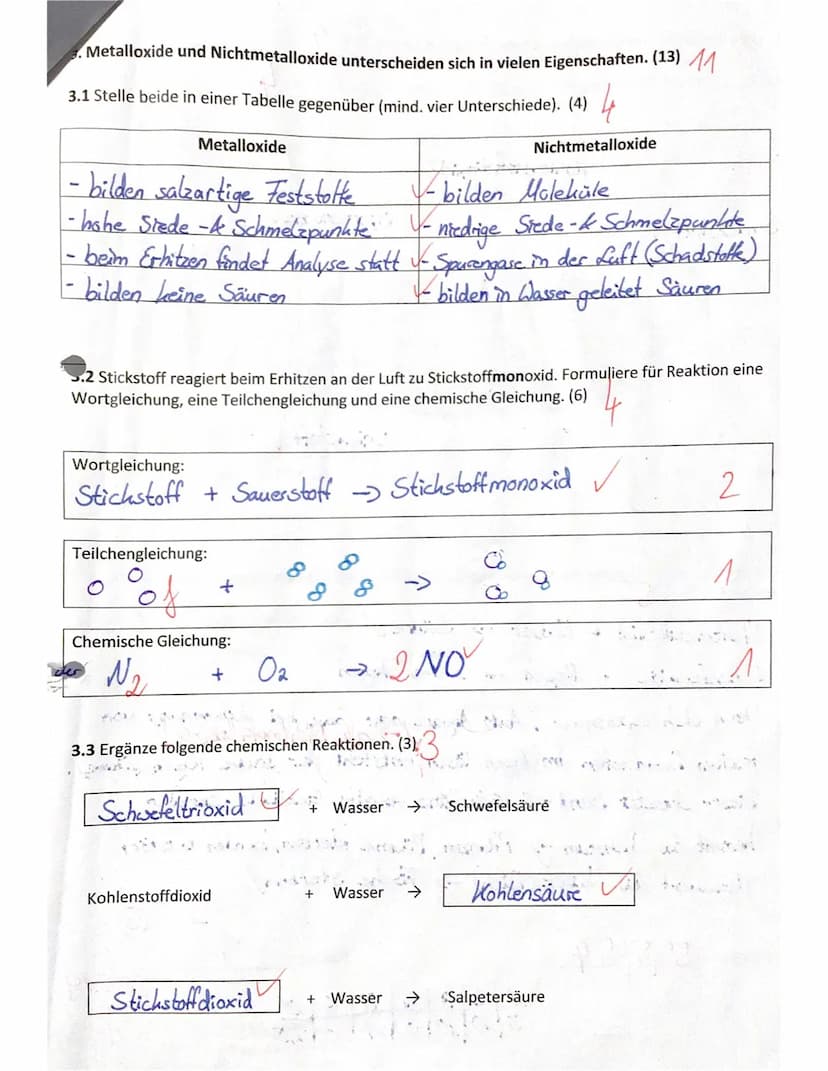 3. Metalloxide und Nichtmetalloxide unterscheiden sich in vielen Eigenschaften. (13) 11
3.1 Stelle beide in einer Tabelle gegenüber (mind. vier Unterschiede). (4) 4
Metalloxide Nichtmetalloxide
- bilden salzartige Feststoffe - bilden Moleküle
- hohe Siede -& Schmelzpunkte - niedrige Siede -& Schmelzpunkte
- beim Erhitzen findet Analyse statt - Spurengase in der Luft (Schadstoffe)
- bilden keine Säuren - bilden in Wasser geleitet Säuren
3.2 Stickstoff reagiert beim Erhitzen an der Luft zu Stickstoffmonoxid. Formuliere für Reaktion eine
Wortgleichung, eine Teilchengleichung und eine chemische Gleichung. (6) 4
Wortgleichung:
Stickstoff + Sauerstoff → Stickstoffmonoxid ✓ 2
Teilchengleichung:
+ → 1
Chemische Gleichung:
N2 + O2 → 2 NO ✓ 1
3.3 Ergänze folgende chemischen Reaktionen. (3) 3
Schwefeltrioxid + Wasser → Schwefelsäure
Kohlenstoffdioxid + Wasser → Kohlensäure
Stickstoffdioxid + Wasser → Salpetersäure